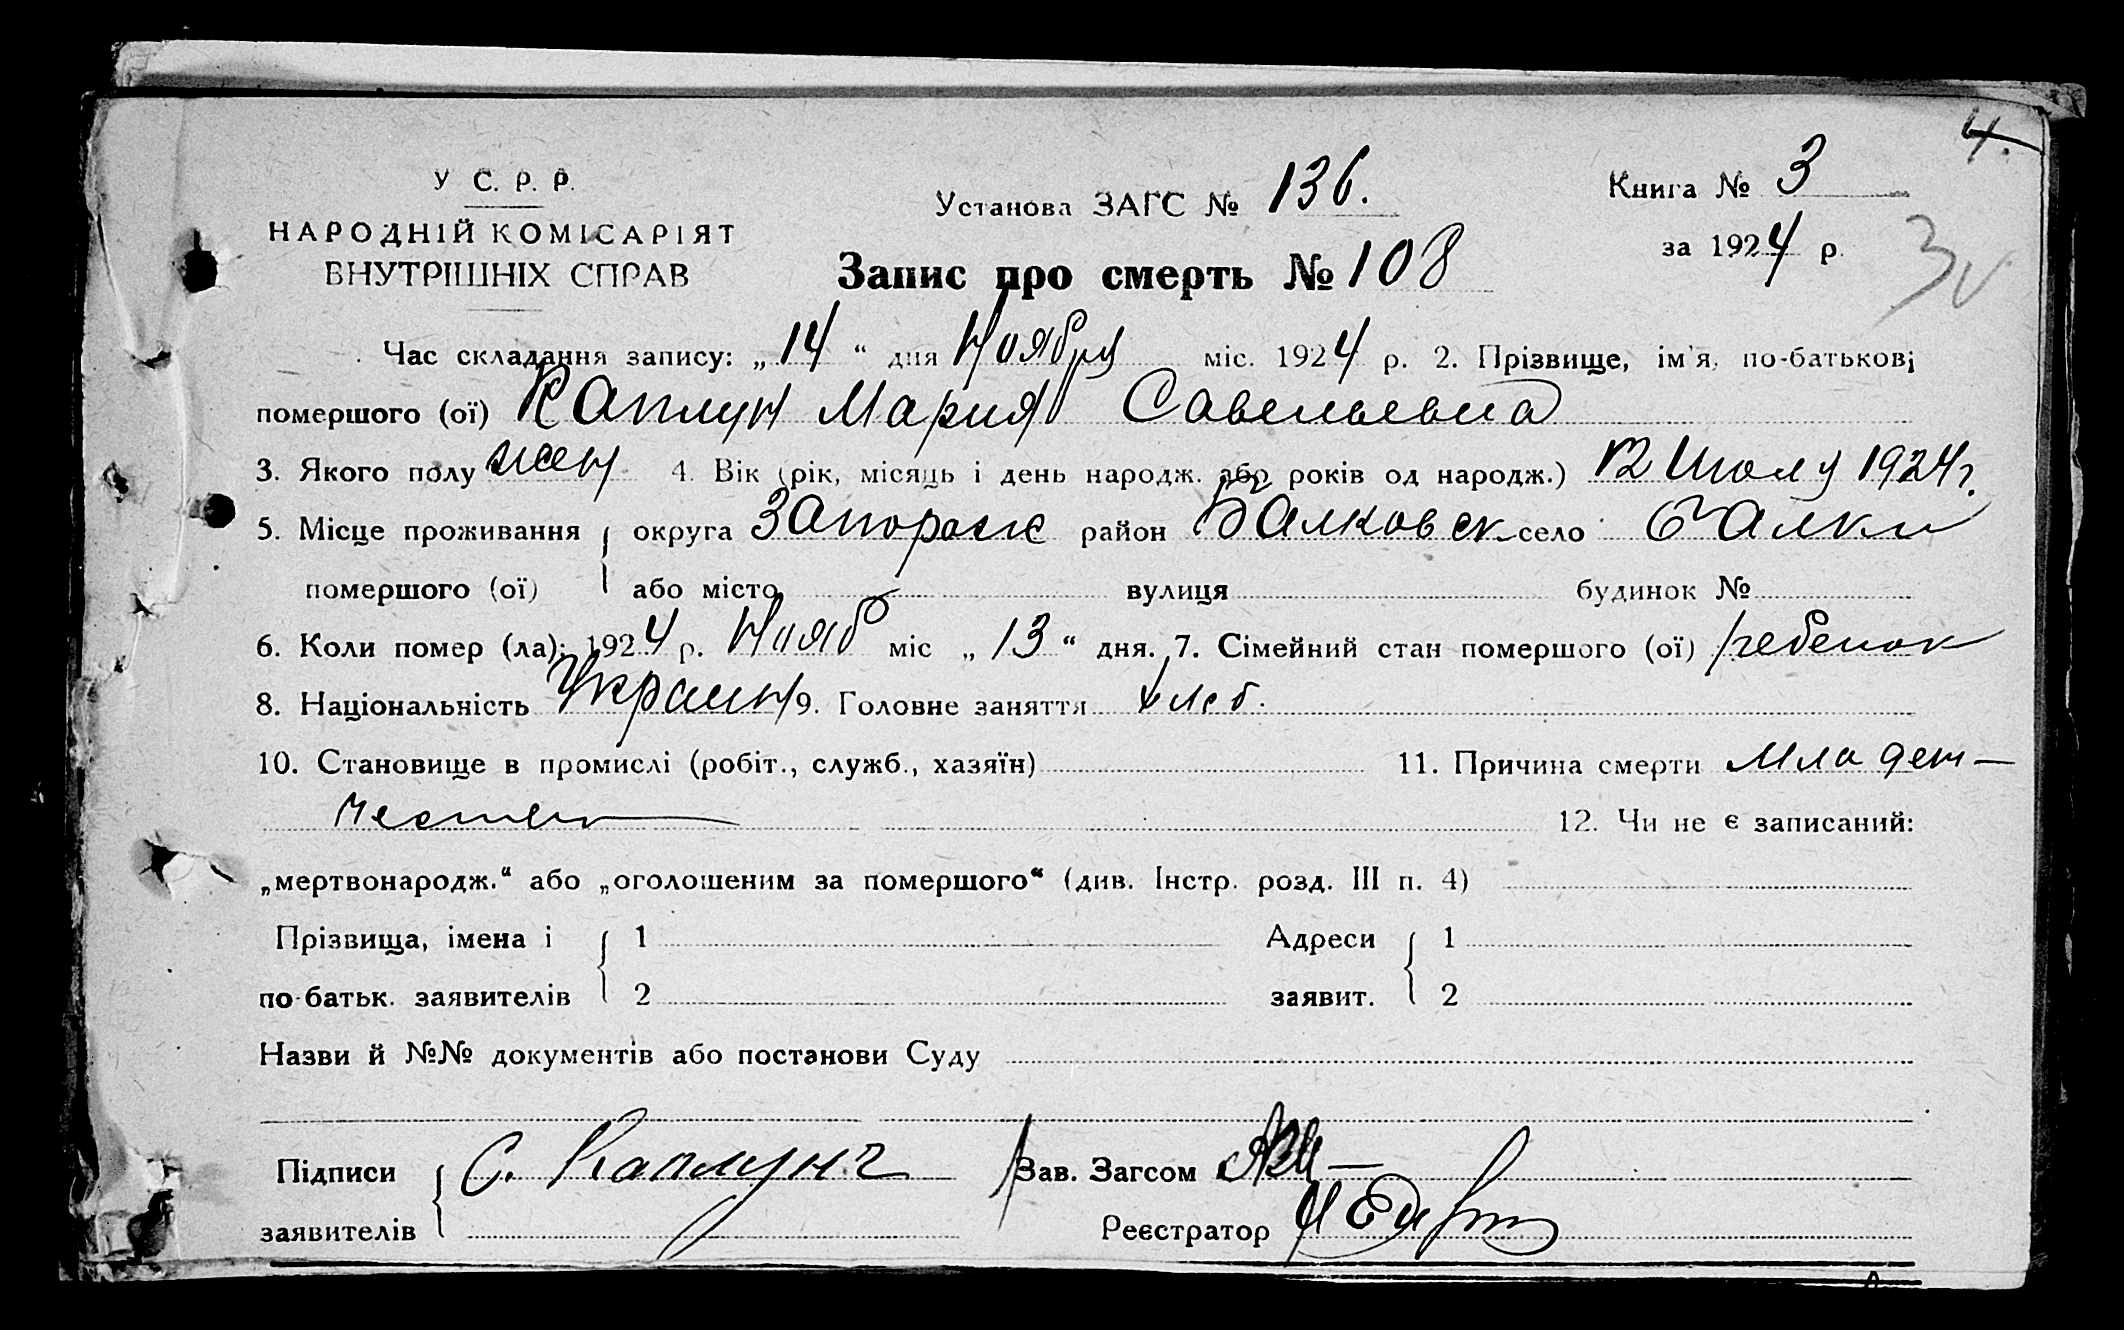 4.
У С. Р. Р.
НАРОДНІЙ КОМІСАРІЯТ
ВНУТРІШНІХ СПРАВ
Установа ЗАГС № 136.
Книга № 3
за 1924 р.
Запис про смерть № 108
Час складання запису: „14“ дня Ноября міс. 1924 р. 2. Прізвище, ім'я, по-батькові
помершого (ої) Каплун Мария Савельевна
3. Якого полу жен 4. Вік (рік, місяць і день народж. або років од народж.) 12 Июля 1924 г.
5. Місце проживання округа Запорожс район Балковск село Балки
помершого (ої) або місто вулиця будинок №
6. Коли помер (ла): 1924 р. Нояб міс „13“ дня. 7. Сімейний стан помершого (ої) ребенок
8. Національність Украин 9. Головне заняття хлеб.
10. Становище в промислі (робіт., служб., хазяїн) 11. Причина смерти Младен-
чество 12. Чи не є записаний:
„мертвонародж.“ або „оголошеним за помершого“ (див. Інстр. розд. III п. 4)
Прізвища, імена і 1 Адреси 1
по-батьк. заявителів 2 заявит. 2
Назви й №№ документів або постанови Суду
Підписи С. Каплун Зав. Загсом
заявителів Реєстратор